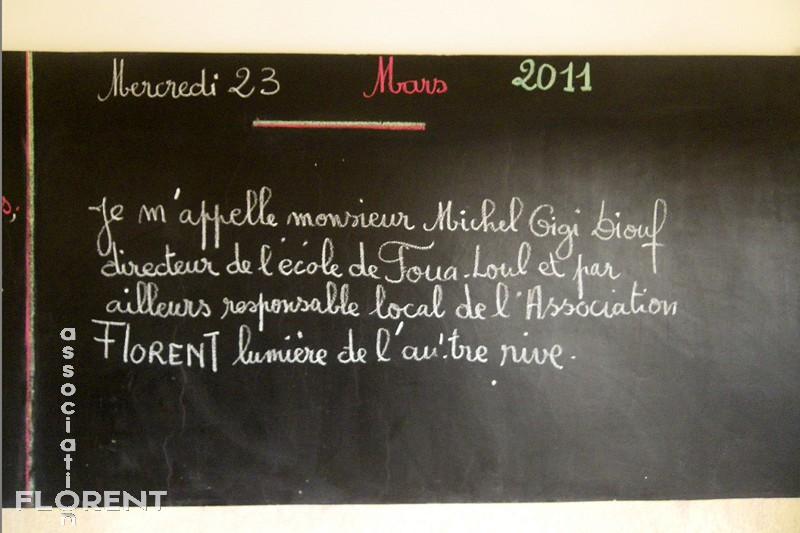 Mercredi 23 Mars 2011
s;
Je m'appelle monsieur Michel Gigi Diouf
directeur de l'école de Foua-Loul et par
ailleurs responsable local de l'Association
FLORENT lumière de l'autre rive.
association
FLORENT